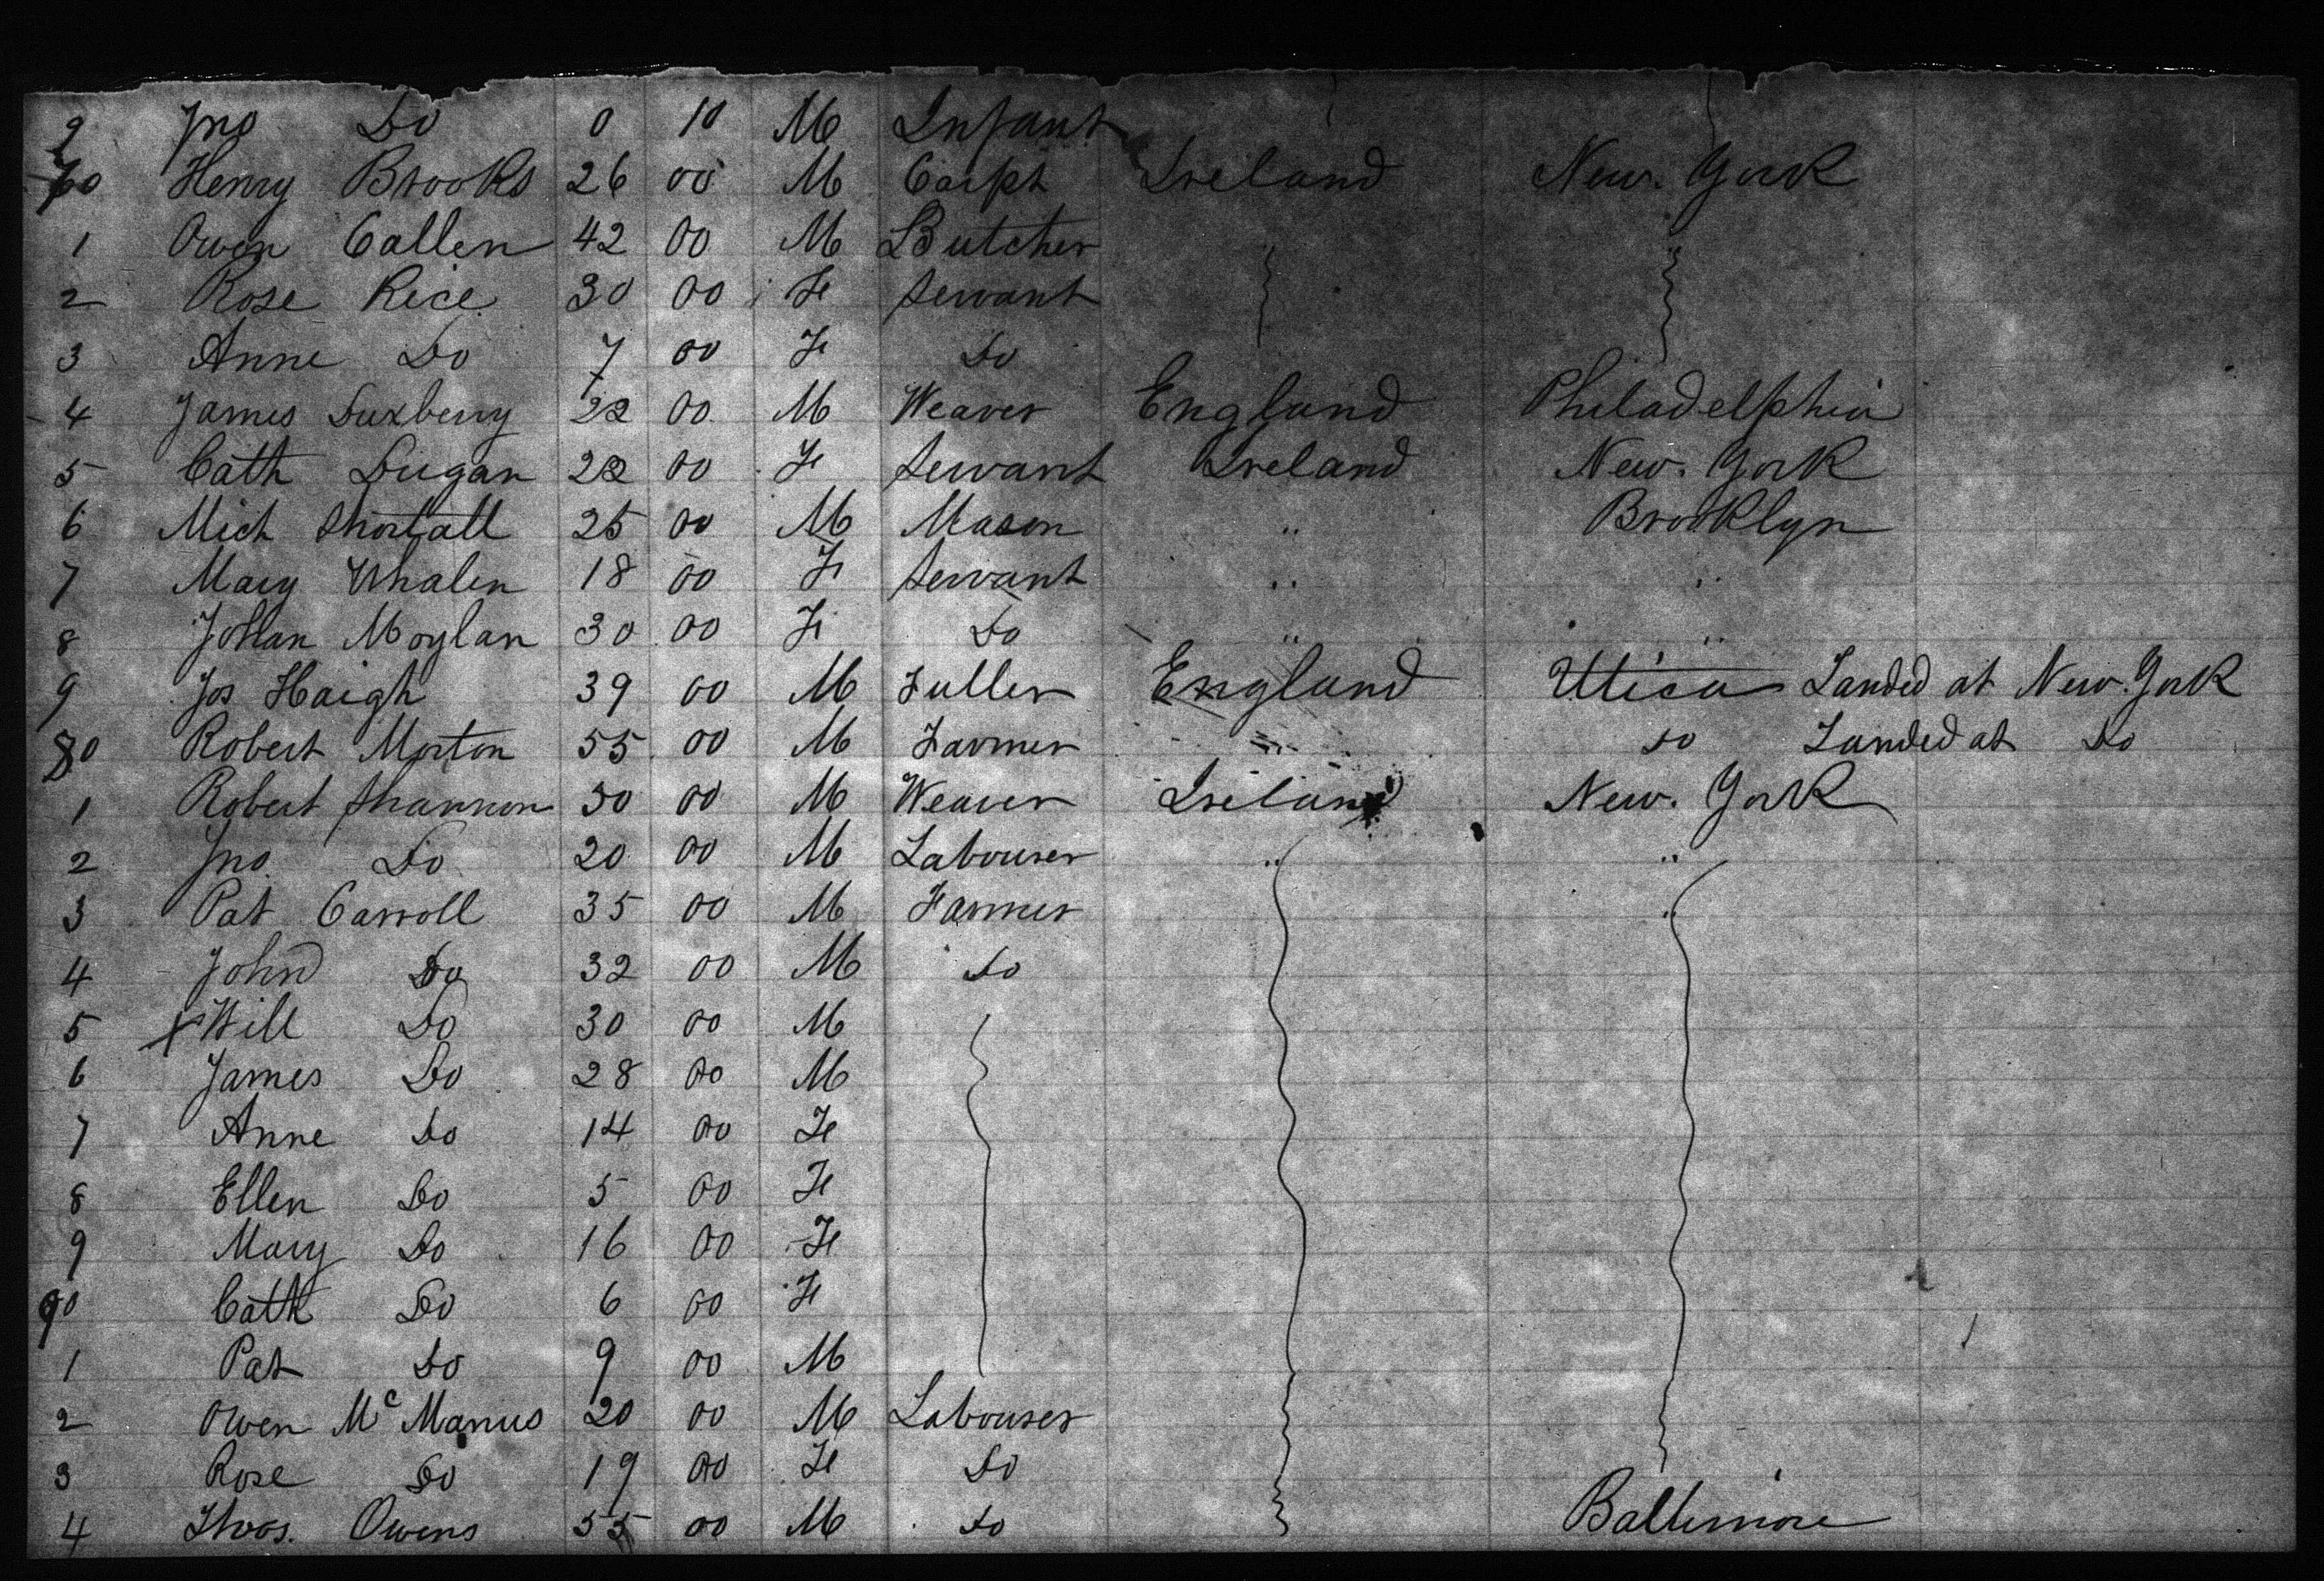 9 Jno Do 0 10 M Infant
70 Henry Brooks 26 00 M Carpt Ireland New York
1 Owen Callen 42 00 M Butcher
2 Rose Rice 30 00 Fe Servant
3 Anne Do 7 00 Fe Do
4 James Duxberry 22 00 M Weaver England Philadelphia
5 Cath Dugan 22 00 Fe Servant Ireland New York
6 Mich Shortall 25 00 M Mason " Brooklyn
7 Mary Whalen 18 00 Fe Servant " "
8 Johan Moylan 30 00 Fe Do " "
9 Jos Haigh 39 00 M Fuller England Utica Landed at New York
80 Robert Morton 55 00 M Farmer " Do Landed at Do
1 Robert Shannon 50 00 M Weaver Ireland New York
2 Jno Do 20 00 M Labourer " "
3 Pat Carroll 35 00 M Farmer "
4 John Do 32 00 M Do
5 X Will Do 30 00 M
6 James Do 28 00 M
7 Anne Do 14 00 Fe
8 Ellen Do 5 00 Fe
9 Mary Do 16 00 Fe
90 Cath Do 6 00 Fe
1 Pat Do 9 00 M
2 Owen McManus 20 00 M Labourer
3 Rose Do 19 00 Fe Do
4 Thos. Owens 55 00 M Do Baltimore